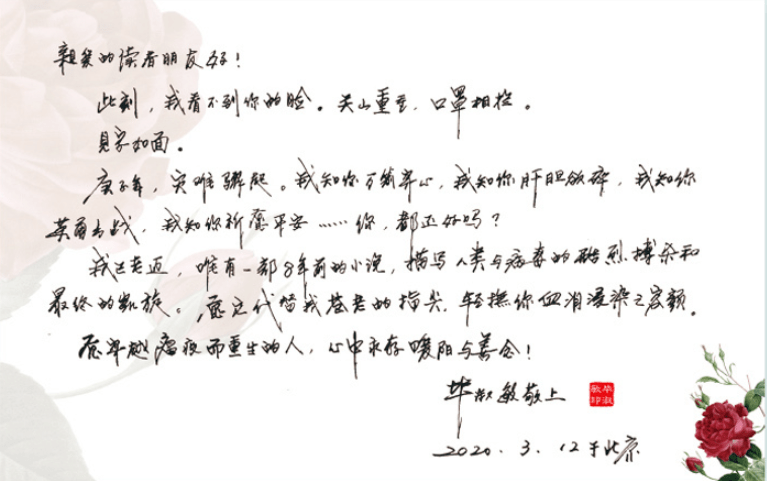 亲爱的读者朋友好！
此刻，我看不到你的脸。关山重重，口罩相控。
见字如面。
庚子年，灾难骤起。我知你万箭穿心，我知你肝胆欲碎，我知你
英勇去战，我知你祈愿平安……你，都还好吗？
我已老迈，唯有一部8年前的小说，描写人类与病毒的酷烈搏杀和
最终的凯旋。愿它代替我苍老的指尖，轻抚你血泪浸染之容颜。
愿穿越瘟疫而重生的人，心中永存暖阳与善念！
毕淑敏敬上
毕淑敏印
2020.3.12于北京